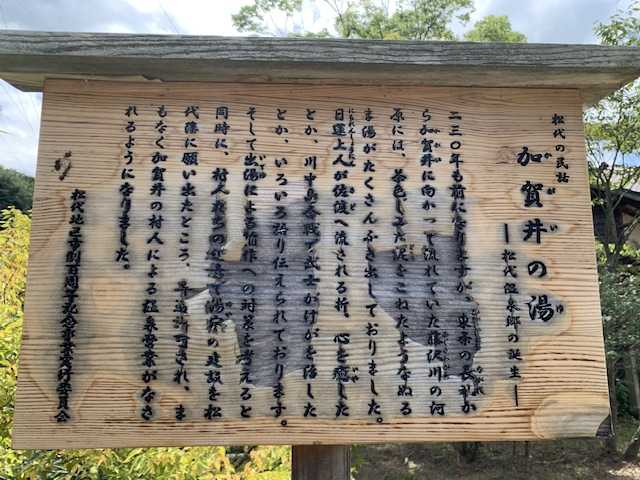 松代の民話
加賀井の湯
かがいのゆ
―松代温泉郷の誕生―
二三〇年も前になりますが、東条の長礼か
ながれ
ら加賀井に向かって流れていた藤沢川の河
原には、茶色した泥をこねたようなぬる
ま湯がたくさんふき出しておりました。
日蓮上人が佐渡へ流される折、心を癒した
にちれんしょうにん さど
とか、川中島合戦で武士がけがを治した
とか、いろいろ語り伝えられております。
そして出湯による稲作への対策を考えると
同時に、村人たちの で湯 の建設を松
代藩に願い出たところ、 許可され、ま
もなく加賀井の村人による温泉営業がなさ
れるようになりました。
松代地区 制百周年記念事業実行委員会